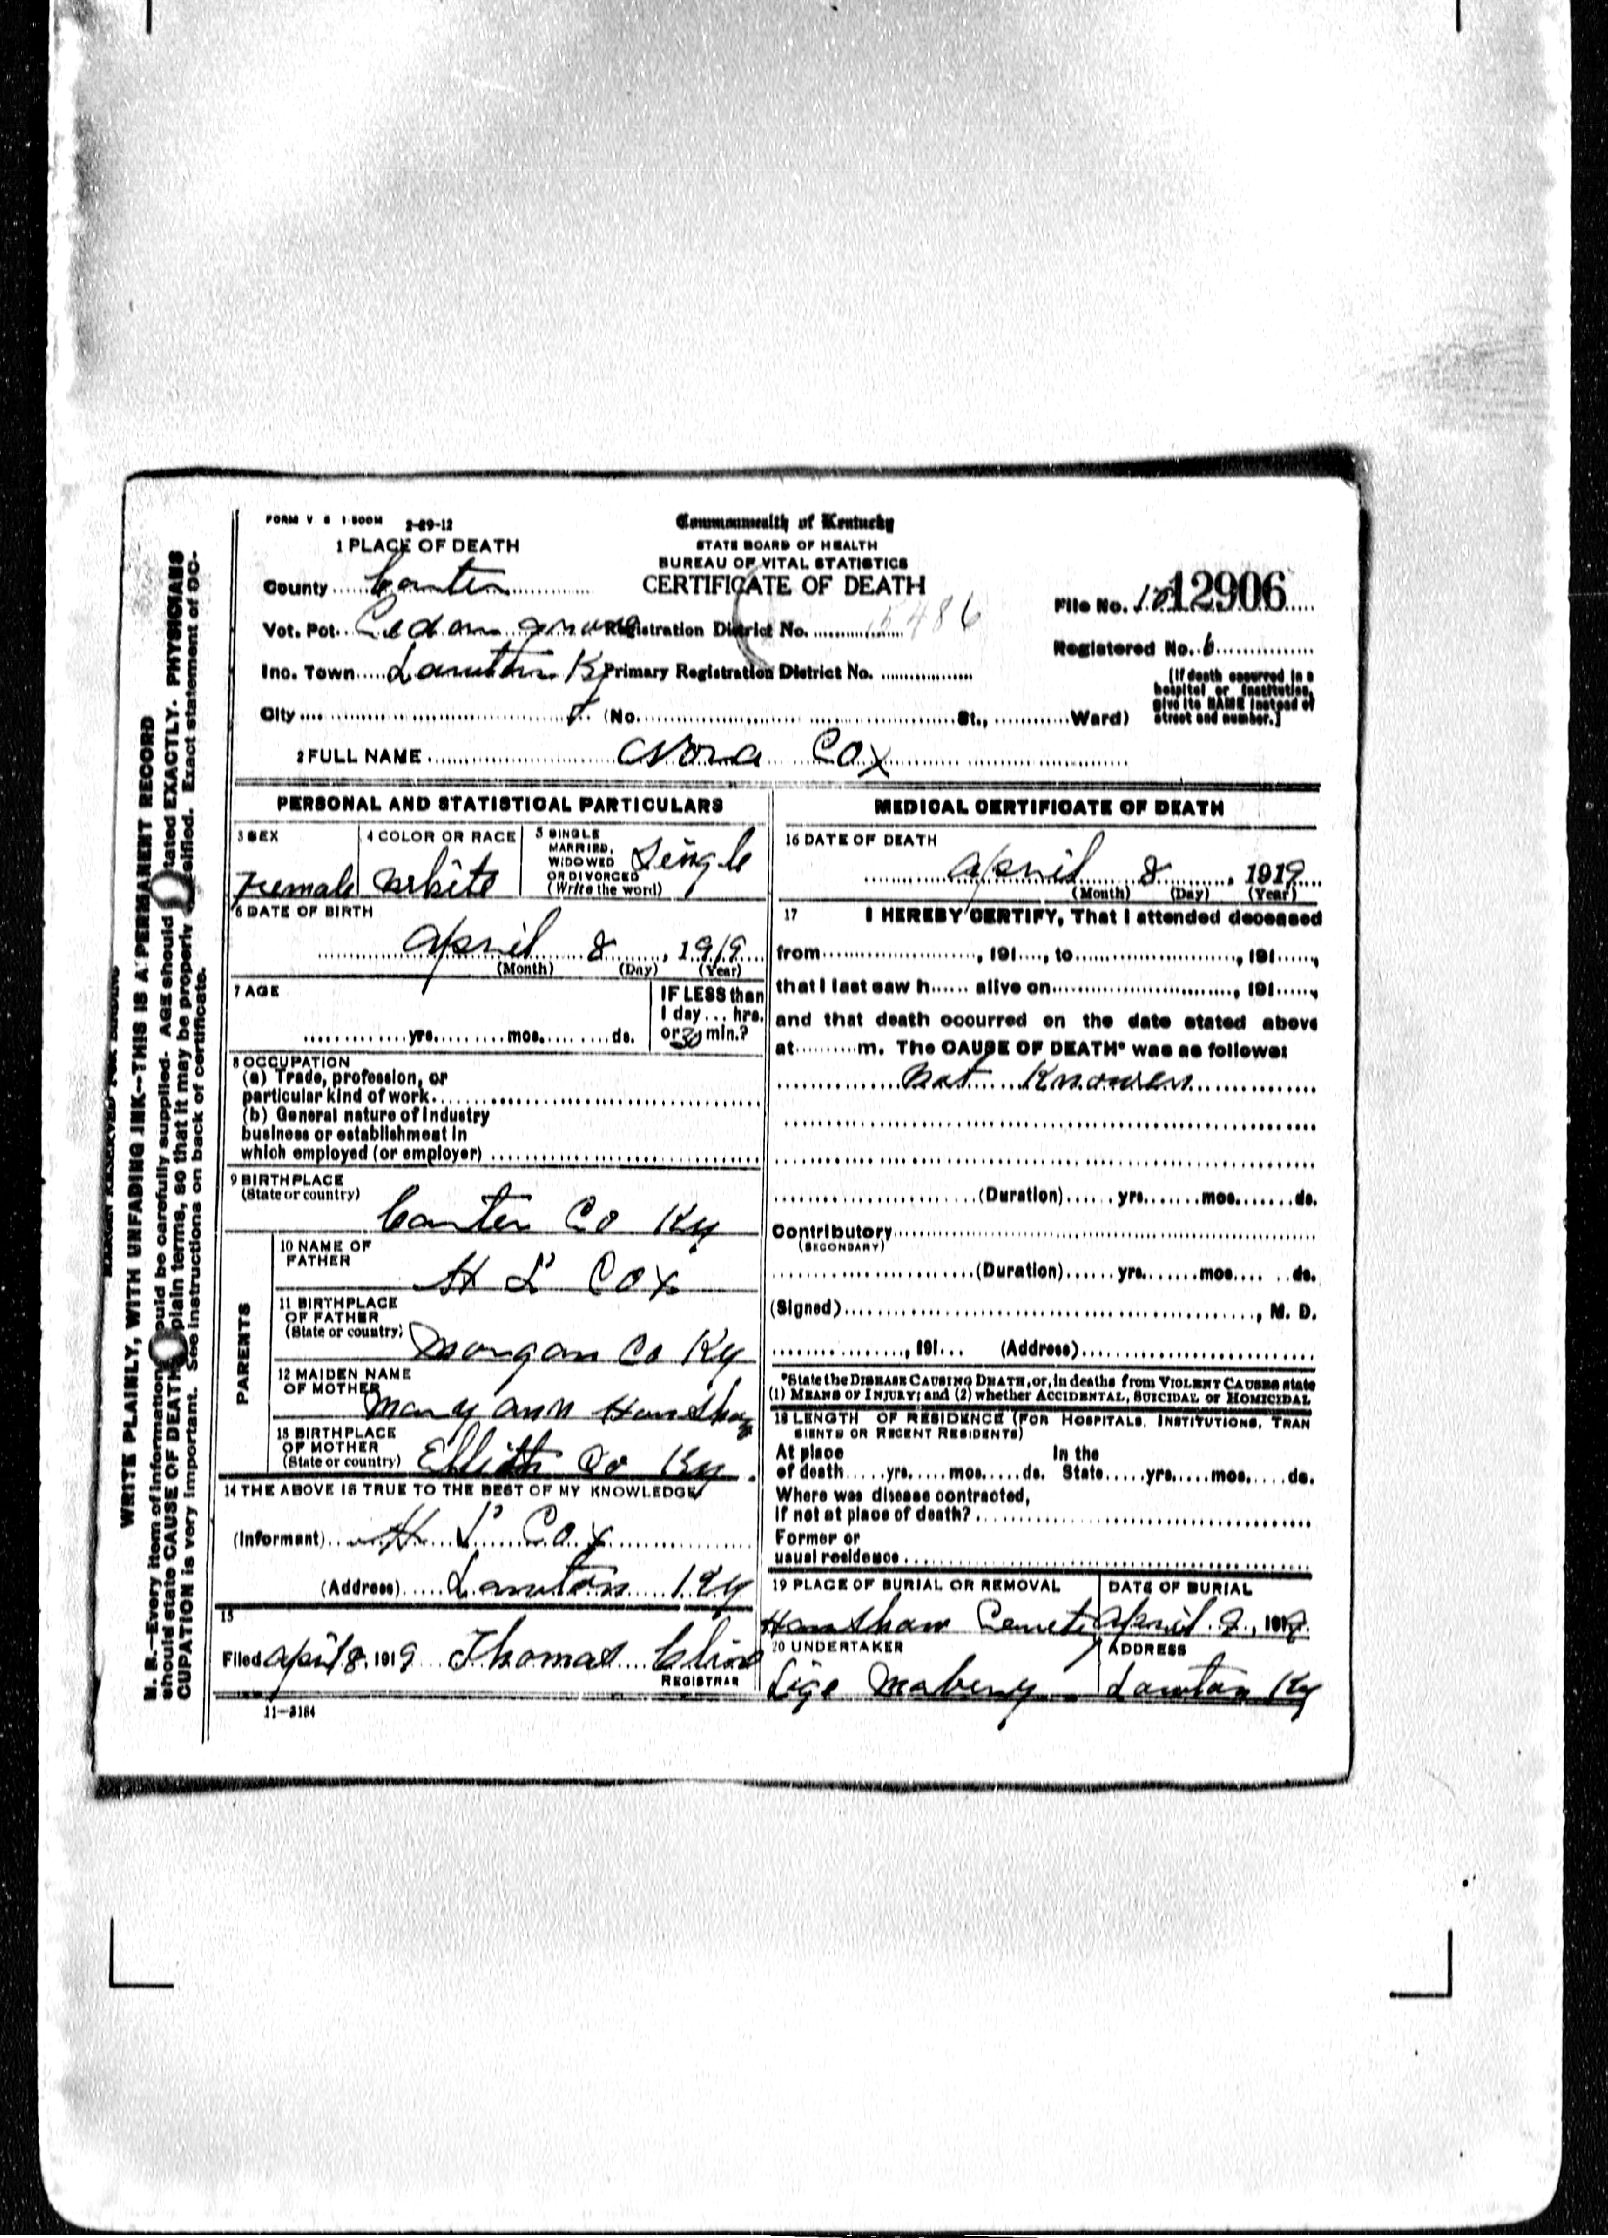 FORM V S 1-500M 2-29-12
Commonwealth of Kentucky
STATE BOARD OF HEALTH
BUREAU OF VITAL STATISTICS
CERTIFICATE OF DEATH
1 PLACE OF DEATH
County Carter
Vot. Pct. Cedar grove Registration District No. 486
Inc. Town Lawton Ky Primary Registration District No.
City (No. St., Ward)
File No. 12906
Registered No. 6
[If death occurred in a
hospital or institution,
give its NAME instead of
street and number.]
2 FULL NAME Nora Cox
PERSONAL AND STATISTICAL PARTICULARS
3 SEX
Female
4 COLOR OR RACE
White
5 SINGLE
MARRIED,
WIDOWED
OR DIVORCED
(Write the word)
Single
6 DATE OF BIRTH
April 8, 1919
(Month) (Day) (Year)
7 AGE
yrs. mos. ds.
IF LESS than
1 day ... hrs.
or 30 min.?
8 OCCUPATION
(a) Trade, profession, or
particular kind of work
(b) General nature of industry
business or establishment in
which employed (or employer)
9 BIRTHPLACE
(State or country)
Carter Co Ky
PARENTS
10 NAME OF
FATHER
H L Cox
11 BIRTHPLACE
OF FATHER
(State or country)
Morgan Co Ky
12 MAIDEN NAME
OF MOTHER
Mary Ann
13 BIRTHPLACE
OF MOTHER
(State or country)
Elliott Co Ky.
14 THE ABOVE IS TRUE TO THE BEST OF MY KNOWLEDGE
(Informant) H L Cox
(Address) Lawton Ky
15
Filed April 8, 1919 Thomas
REGISTRAR
11-3184
MEDICAL CERTIFICATE OF DEATH
16 DATE OF DEATH
April 8, 1919
(Month) (Day) (Year)
17 I HEREBY CERTIFY, That I attended deceased
from, 191, to, 191,
that I last saw h alive on, 191,
and that death occurred on the date stated above
at m. The CAUSE OF DEATH* was as follows:
Not Knowen
(Duration) yrs. mos. ds.
Contributory
(SECONDARY)
(Duration) yrs. mos. ds.
(Signed), M. D.
, 191 (Address)
*State the DISEASE CAUSING DEATH, or, in deaths from VIOLENT CAUSES state
(1) MEANS OF INJURY; and (2) whether ACCIDENTAL, SUICIDAL or HOMICIDAL
18 LENGTH OF RESIDENCE (FOR HOSPITALS, INSTITUTIONS, TRAN
SIENTS OR RECENT RESIDENTS)
At place In the
of death yrs. mos. ds. State yrs. mos. ds.
Where was disease contracted,
If not at place of death?
Former or
usual residence
19 PLACE OF BURIAL OR REMOVAL
Hanshaw Cemete
DATE OF BURIAL
April 9, 1919
20 UNDERTAKER
Lige Mabery
ADDRESS
Lawton Ky
WRITE PLAINLY, WITH UNFADING INK--THIS IS A PERMANENT RECORD
N. B.--Every item of information should be carefully supplied. AGE should stated EXACTLY. PHYSICIANS
should state CAUSE OF DEATH plain terms, so that it may be properly classified. Exact statement of OC-
CUPATION is very important. See instructions on back of certificate.